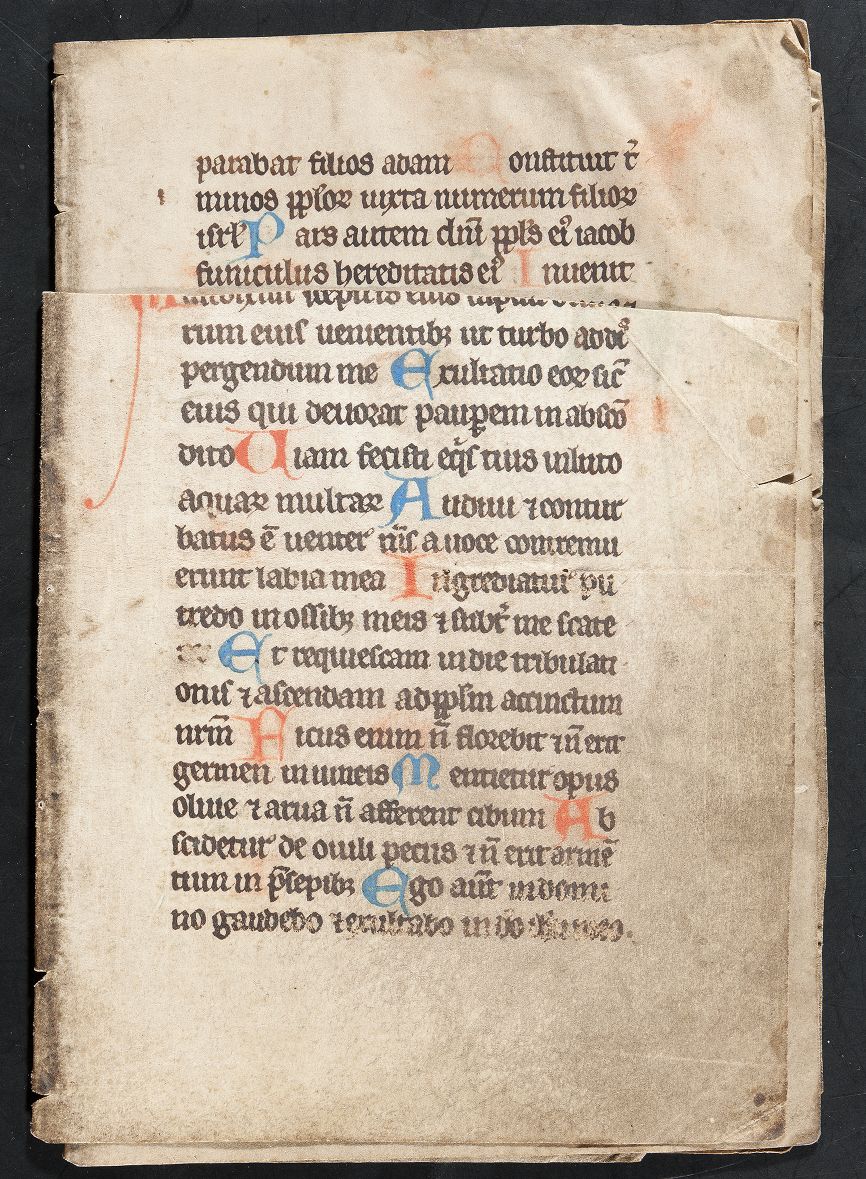 parabat filios adam Constituit t̄
minos pp̄lor uixta numerum filior
isrl̄ Pars autem dn̄i pp̄ls ei᷒ iacob
funiculus hereditatis ei᷒ Inuenit
rum eius uenientibꝫ ut turbo add᷒
pergendum me Exultatio eoꝝ sic̄
eius qui deuorat paup̄em in absco̅
dito Uiam fecisti eq̄s tuis in luto
aquaꝝ multaꝝ Audiui ⁊ contur
batus ē uenter m̄s a uoce contremu
erunt labia mea Ingrediatur pu
tredo in ossibꝫ meis ⁊ subt̄ me scate
Et requiescam in die tribulati
onis ⁊ ascendam ad pp̄lm accinctum
nr̄m Ficus enim n̄ florebit ⁊ n̄ erit
germen in uineis Mentietur opus
oliue ⁊ arua n̄ afferent cibum Ab
scidetur de ouili pecus ⁊ n̄ erit armē
tum in p̄sepibꝫ Ego aūt in domi
no gaudebo ⁊ exultabo in do